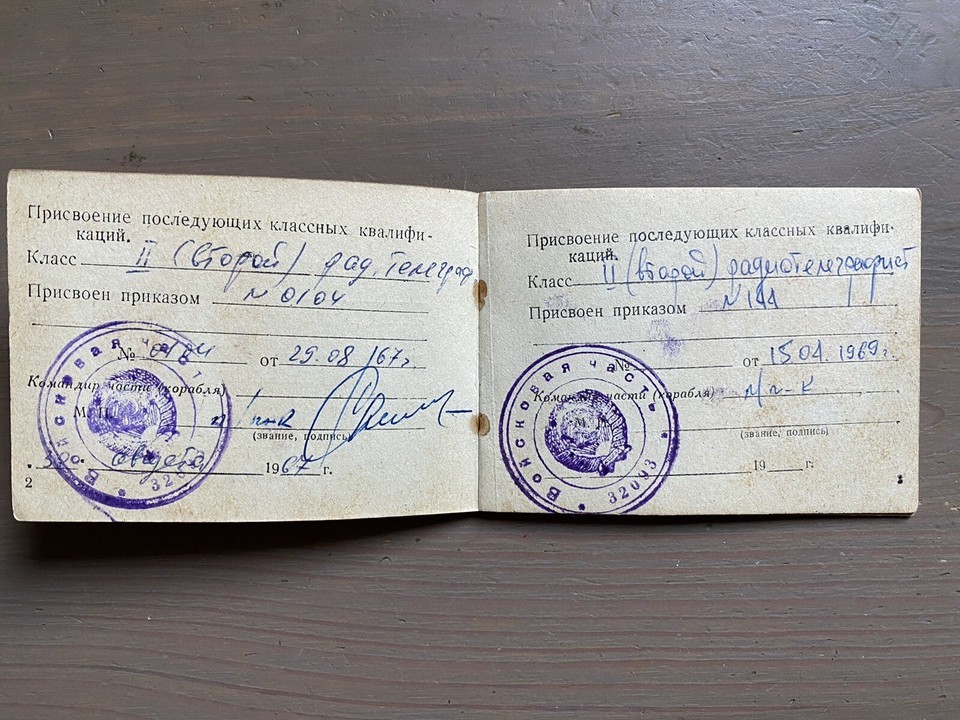 Присвоение последующих классных квалифи-
каций.
Класс II (второй) рад. телеграф
Присвоен приказом № 0104
№ 0104 от 29.08.67г.
Командир части (корабля)
М. П. п/п-к
(звание, подпись)
"30" августа 1967 г.
2
Войсковая часть
Присвоение последующих классных квалифи-
каций.
Класс II (второй) радиотелеграфист
Присвоен приказом № 144
№ от 15.01.1969г.
Командир части (корабля) М/г-к
М. П.
(звание, подпись)
19 г.
3
Войсковая часть 32093